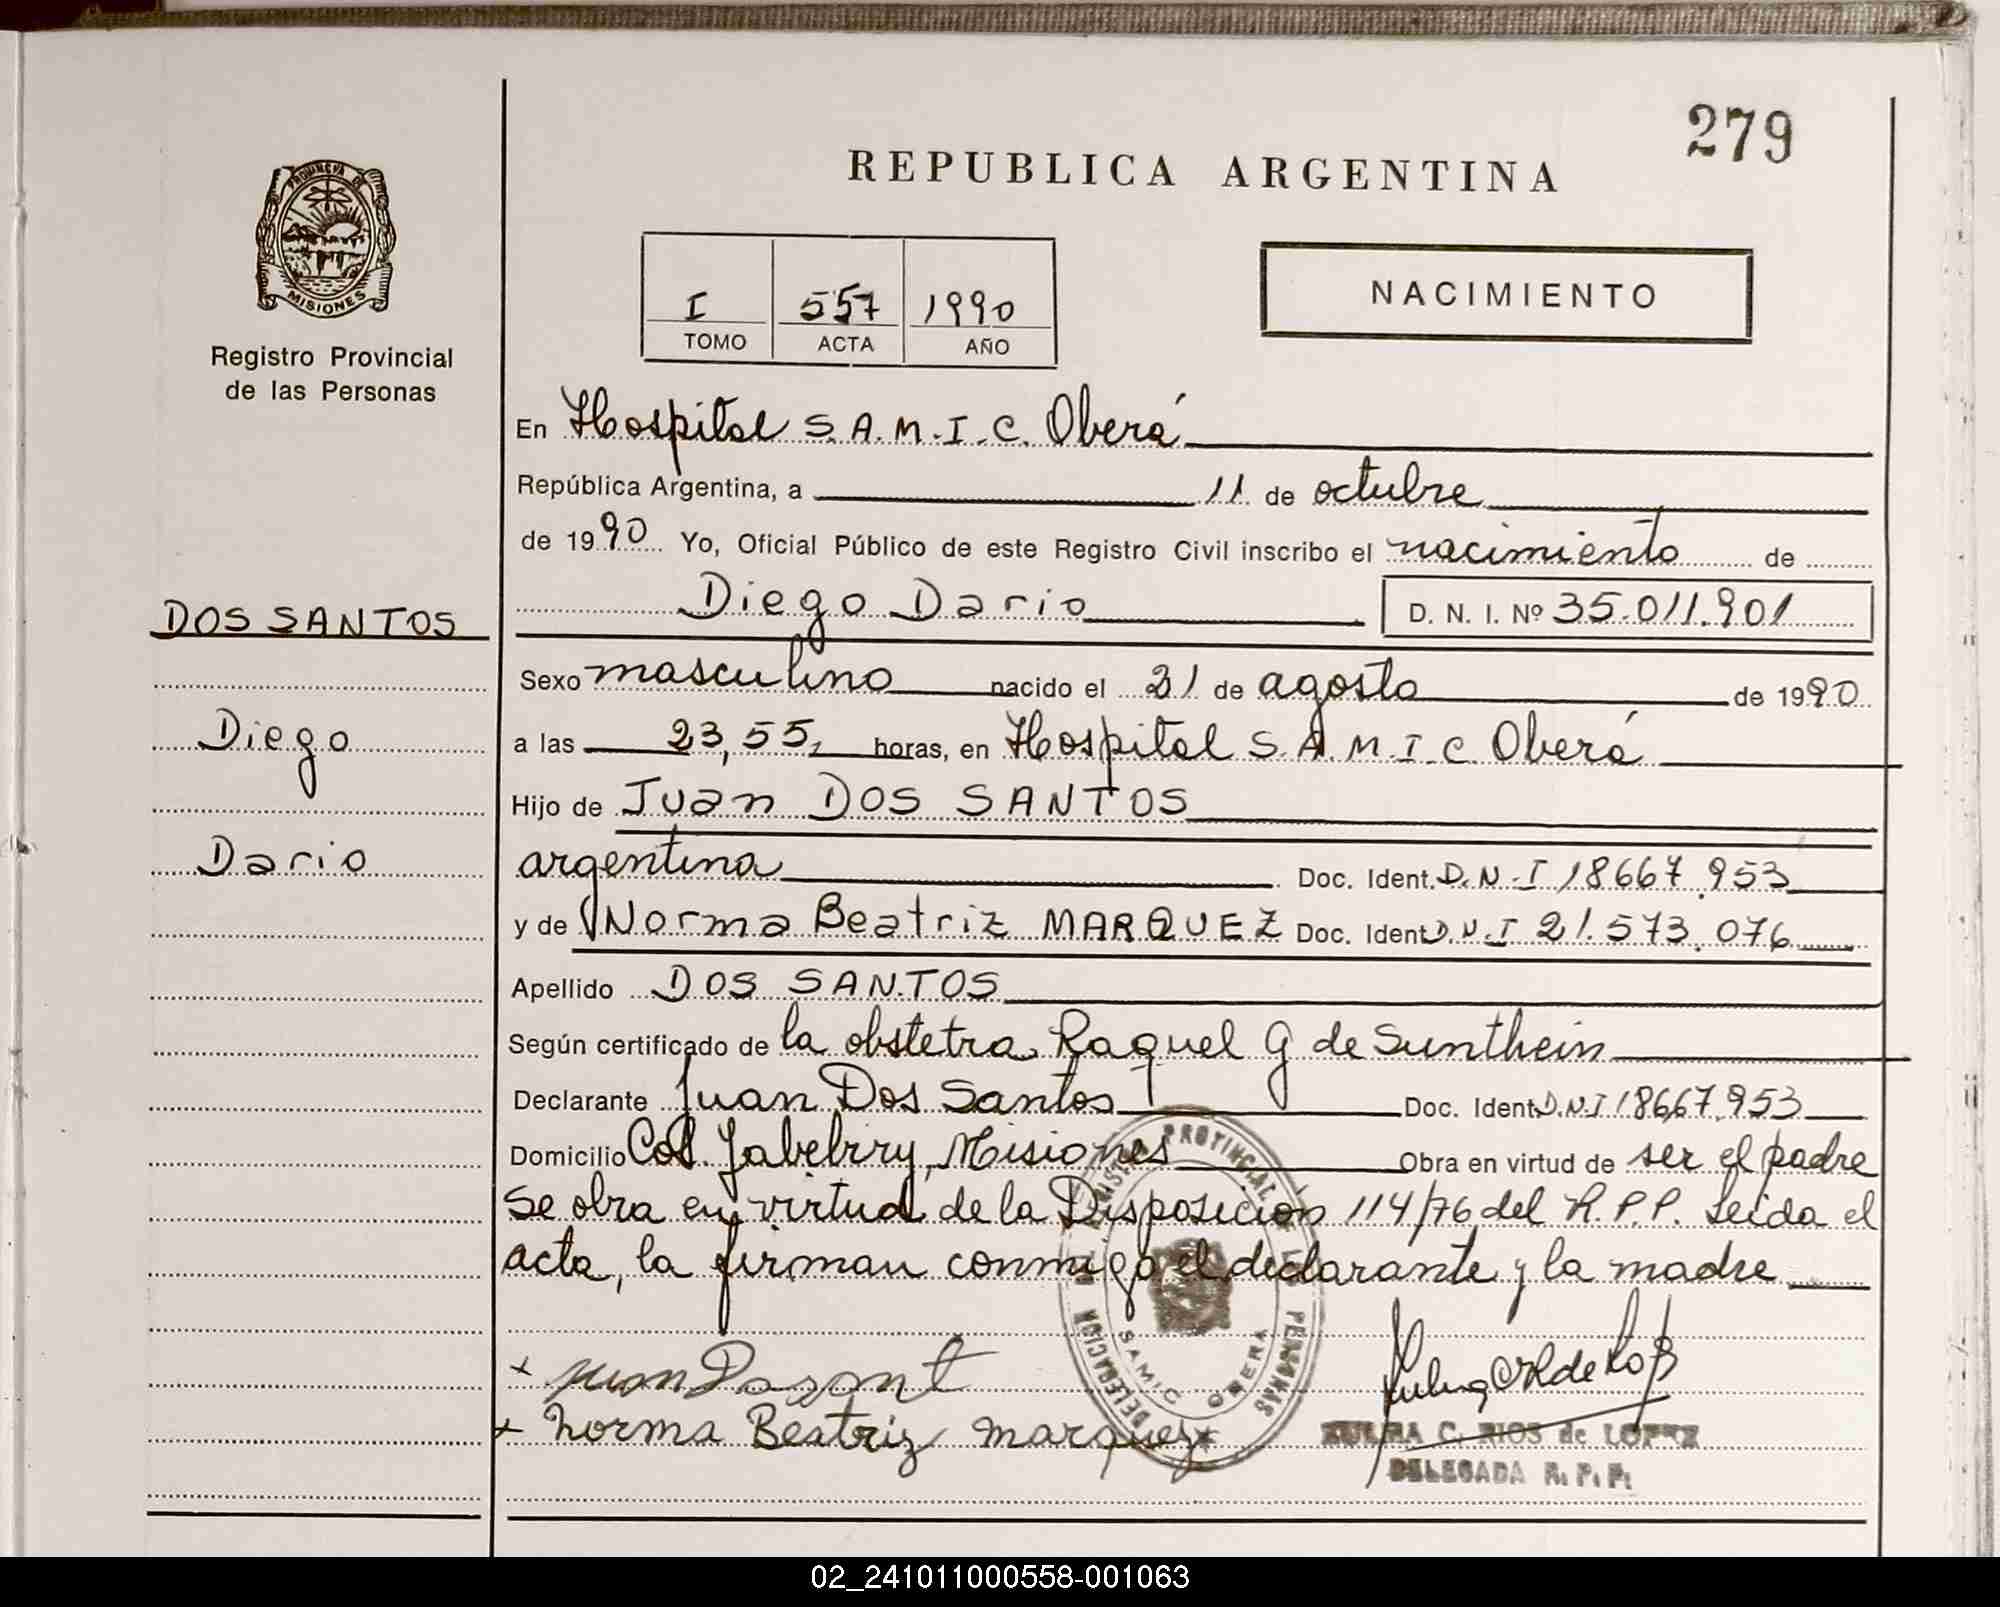 279
REPUBLICA ARGENTINA
PROVINCIA DE
MISIONES
Registro Provincial
de las Personas
I 557 1990
TOMO ACTA AÑO
NACIMIENTO
En Hospital S.A.M.I.C. Oberá
República Argentina, a 11 de octubre
de 1990 Yo, Oficial Público de este Registro Civil inscribo el nacimiento de
Diego Dario D. N. I. Nº 35.011.901
DOS SANTOS
Diego
Dario
Sexo masculino nacido el 31 de agosto de 1990
a las 23,55, horas, en Hospital S.A.M.I.C. Oberá
Hijo de Juan DOS SANTOS
argentina Doc. Ident. D.N.I 18667.953
y de Norma Beatriz MARQUEZ Doc. Ident D.N.I 21.573.076
Apellido DOS SANTOS
Según certificado de la obstetra Raquel G de Sunthein
Declarante Juan Dos Santos Doc. Ident D.N.I 18667.953
Domicilio Col Yabebiry, Misiones Obra en virtud de ser el padre
Se obra en virtud de la Disposición 114/76 del R.P.P. Leida el
acta, la firman conmigo el declarante y la madre
x Juan Dosant
x Norma Beatriz Marquez
REGISTRO PROVINCIAL DE LAS PERSONAS
DELEGACION
SAMIC OBERA
ZULMA C. RIOS de LOPEZ
DELEGADA R. P. P.
02_241011000558-001063